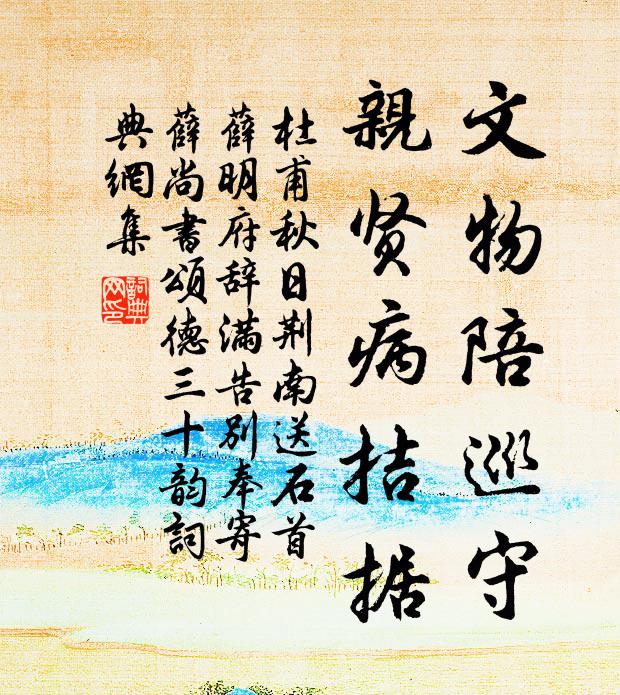 文物陪巡守
親贤病拮据
杜甫秋日荆南送石首
薛明府辞满告别奉寄
薛尚書頌德三十韵詞
典網集
詞典網印